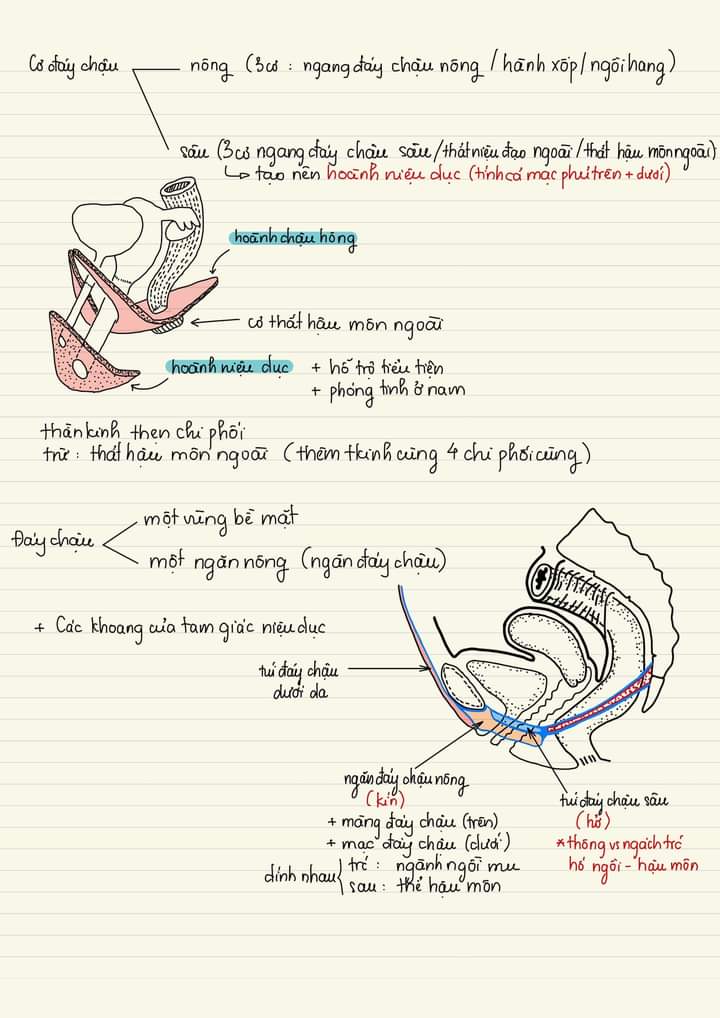 Cơ đáy chậu nông (3 cơ : ngang đáy chậu nông / hành xốp / ngồi hang)
sâu (3 cơ ngang đáy chậu sâu / thắt niệu đạo ngoài / thắt hậu môn ngoài)
↳ tạo nên hoành niệu dục (tính cả mạc phủ trên + dưới)
hoành chậu hông
cơ thắt hậu môn ngoài
hoành niệu dục + hỗ trợ tiểu tiện
+ phóng tinh ở nam
thần kinh thẹn chi phối
trừ : thắt hậu môn ngoài (thêm tkinh cùng 4 chi phối cùng)
Đáy chậu
một vùng bề mặt
một ngăn nông (ngăn đáy chậu)
+ Các khoang của tam giác niệu dục
túi đáy chậu
dưới da
ngăn đáy chậu nông
(kín)
+ màng đáy chậu (trên)
+ mạc đáy chậu (dưới)
dính nhau { trc : ngành ngồi mu
sau : thể hậu môn
túi đáy chậu sâu
(hở)
* thông vs ngách trc
hố ngồi - hậu môn